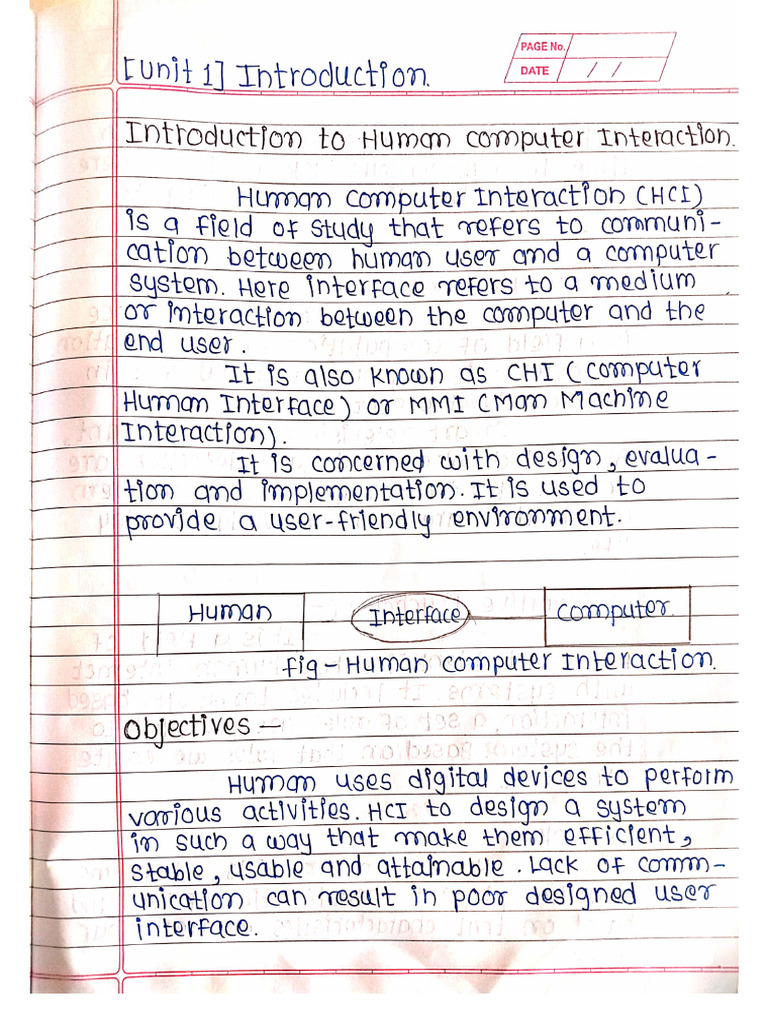 PAGE No.
DATE / /
[Unit 1] Introduction.
Introduction to Human Computer Interaction.
Human Computer Interaction (HCI)
is a field of study that refers to communi-
cation between human user and a computer
system. Here interface refers to a medium
or interaction between the computer and the
end user.
It is also known as CHI (Computer
Human Interface) or MMI (Man Machine
Interaction).
It is concerned with design, evalua-
tion and implementation. It is used to
provide a user-friendly environment.
Human Interface Computer
fig - Human Computer Interaction.
Objectives -
Human uses digital devices to perform
various activities. HCI to design a system
in such a way that make them efficient,
stable, usable and attainable. Lack of comm-
unication can result in poor designed user
interface.